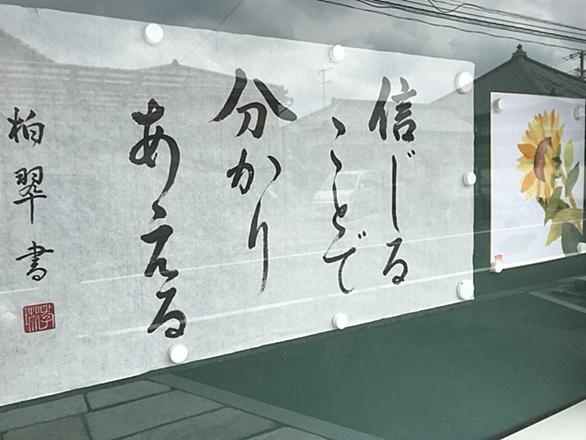 信じる
ことで
分かり
あえる
柏翠書